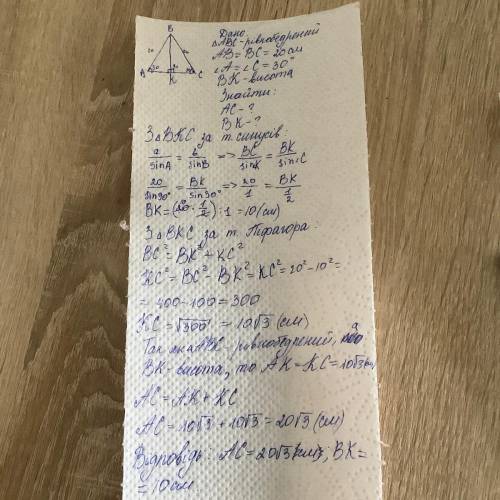 B
20
20
A
30
30
C
K
Дано
△ABC - рівнобедрений
AB = BC = 20 см
∠A = ∠C = 30°
BK - висота
Знайти:
AC - ?
BK - ?
З △BKC за т. синусів:
a/sinA = b/sinB => BC/sinK = BK/sinC
20/sin90° = BK/sin30° => 20/1 = BK/(1/2)
BK = (20 · 1/2) : 1 = 10 (см)
З △BKC за т. Піфагора:
BC² = BK² + KC²
KC² = BC² - BK² = KC² = 20² - 10² =
= 400 - 100 = 300
KC = √300 = 10√3 (см)
Так як △ABC - рівнобедрений, а
BK - висота, то AK = KC = 10√3 см
AC = AK + KC
AC = 10√3 + 10√3 = 20√3 (см)
Відповідь: AC = 20√3 см; BK =
= 10 см